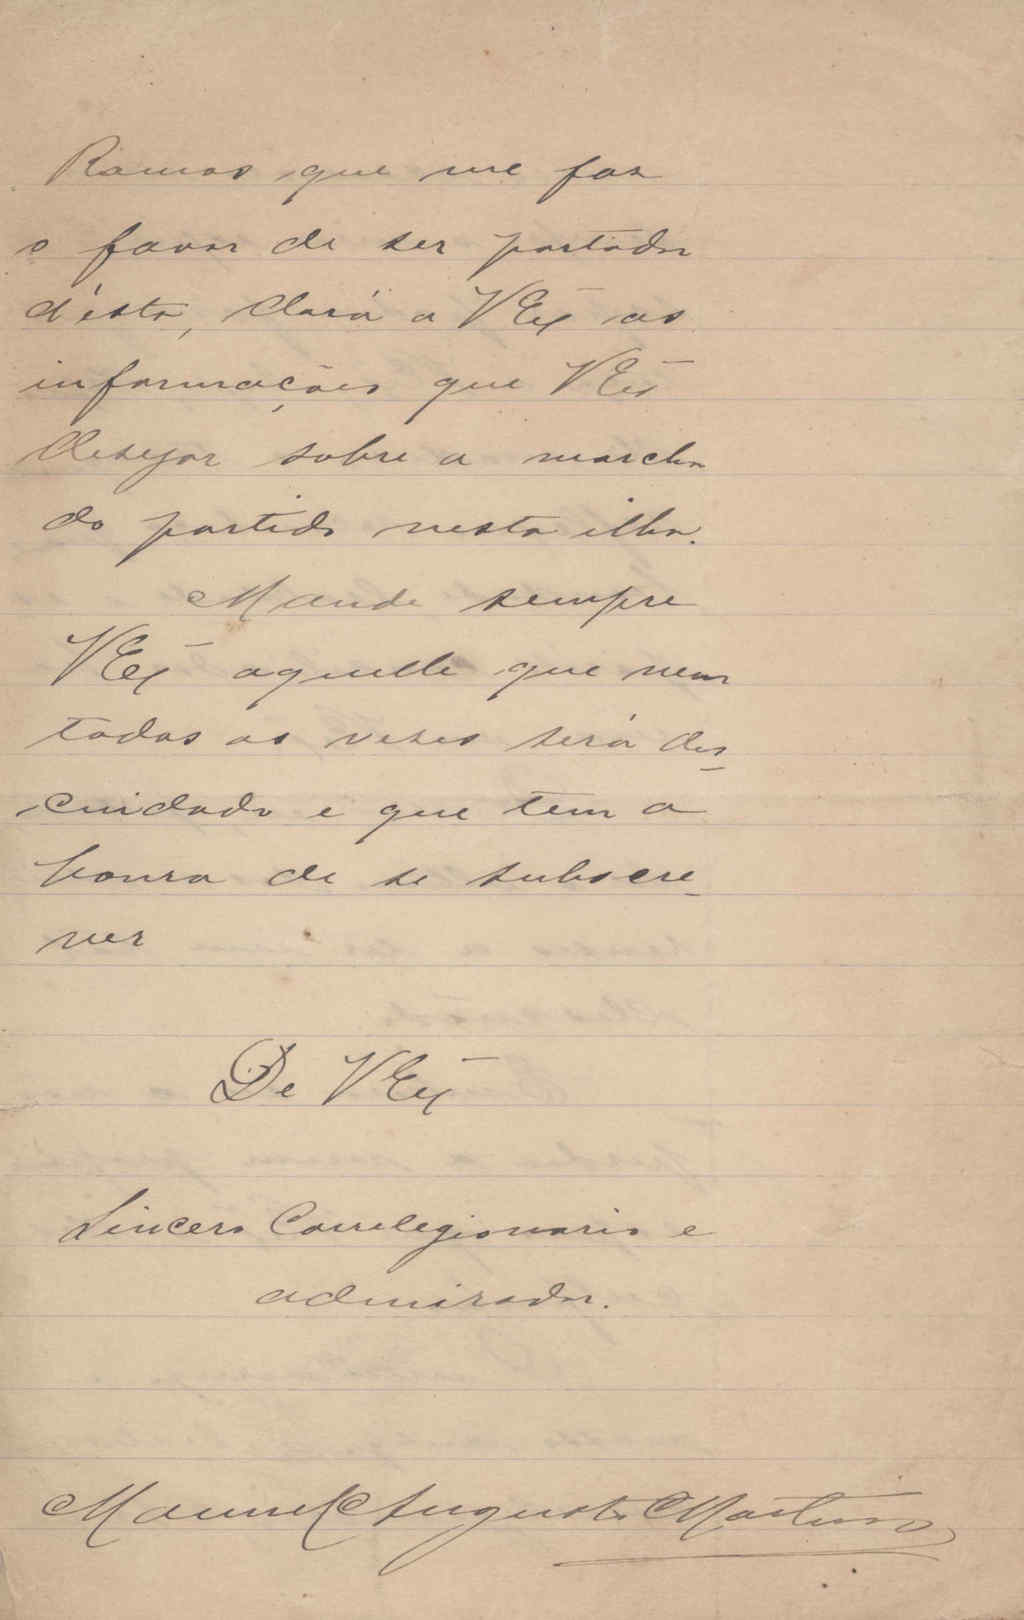 Ramos que me faz
o favor de ser portador
d'ésta, dará a VEx as
informações que VEx
desejar sobre a marcha
do partido nesta ilha.
Mande sempre
VEx aquelle que nem
todas as vezes será des_
cuidado e que tem a
honra de se subscre_
ver
De VEx
Sincero Correlegionario e
admirador.
Manuel Augusto Martins